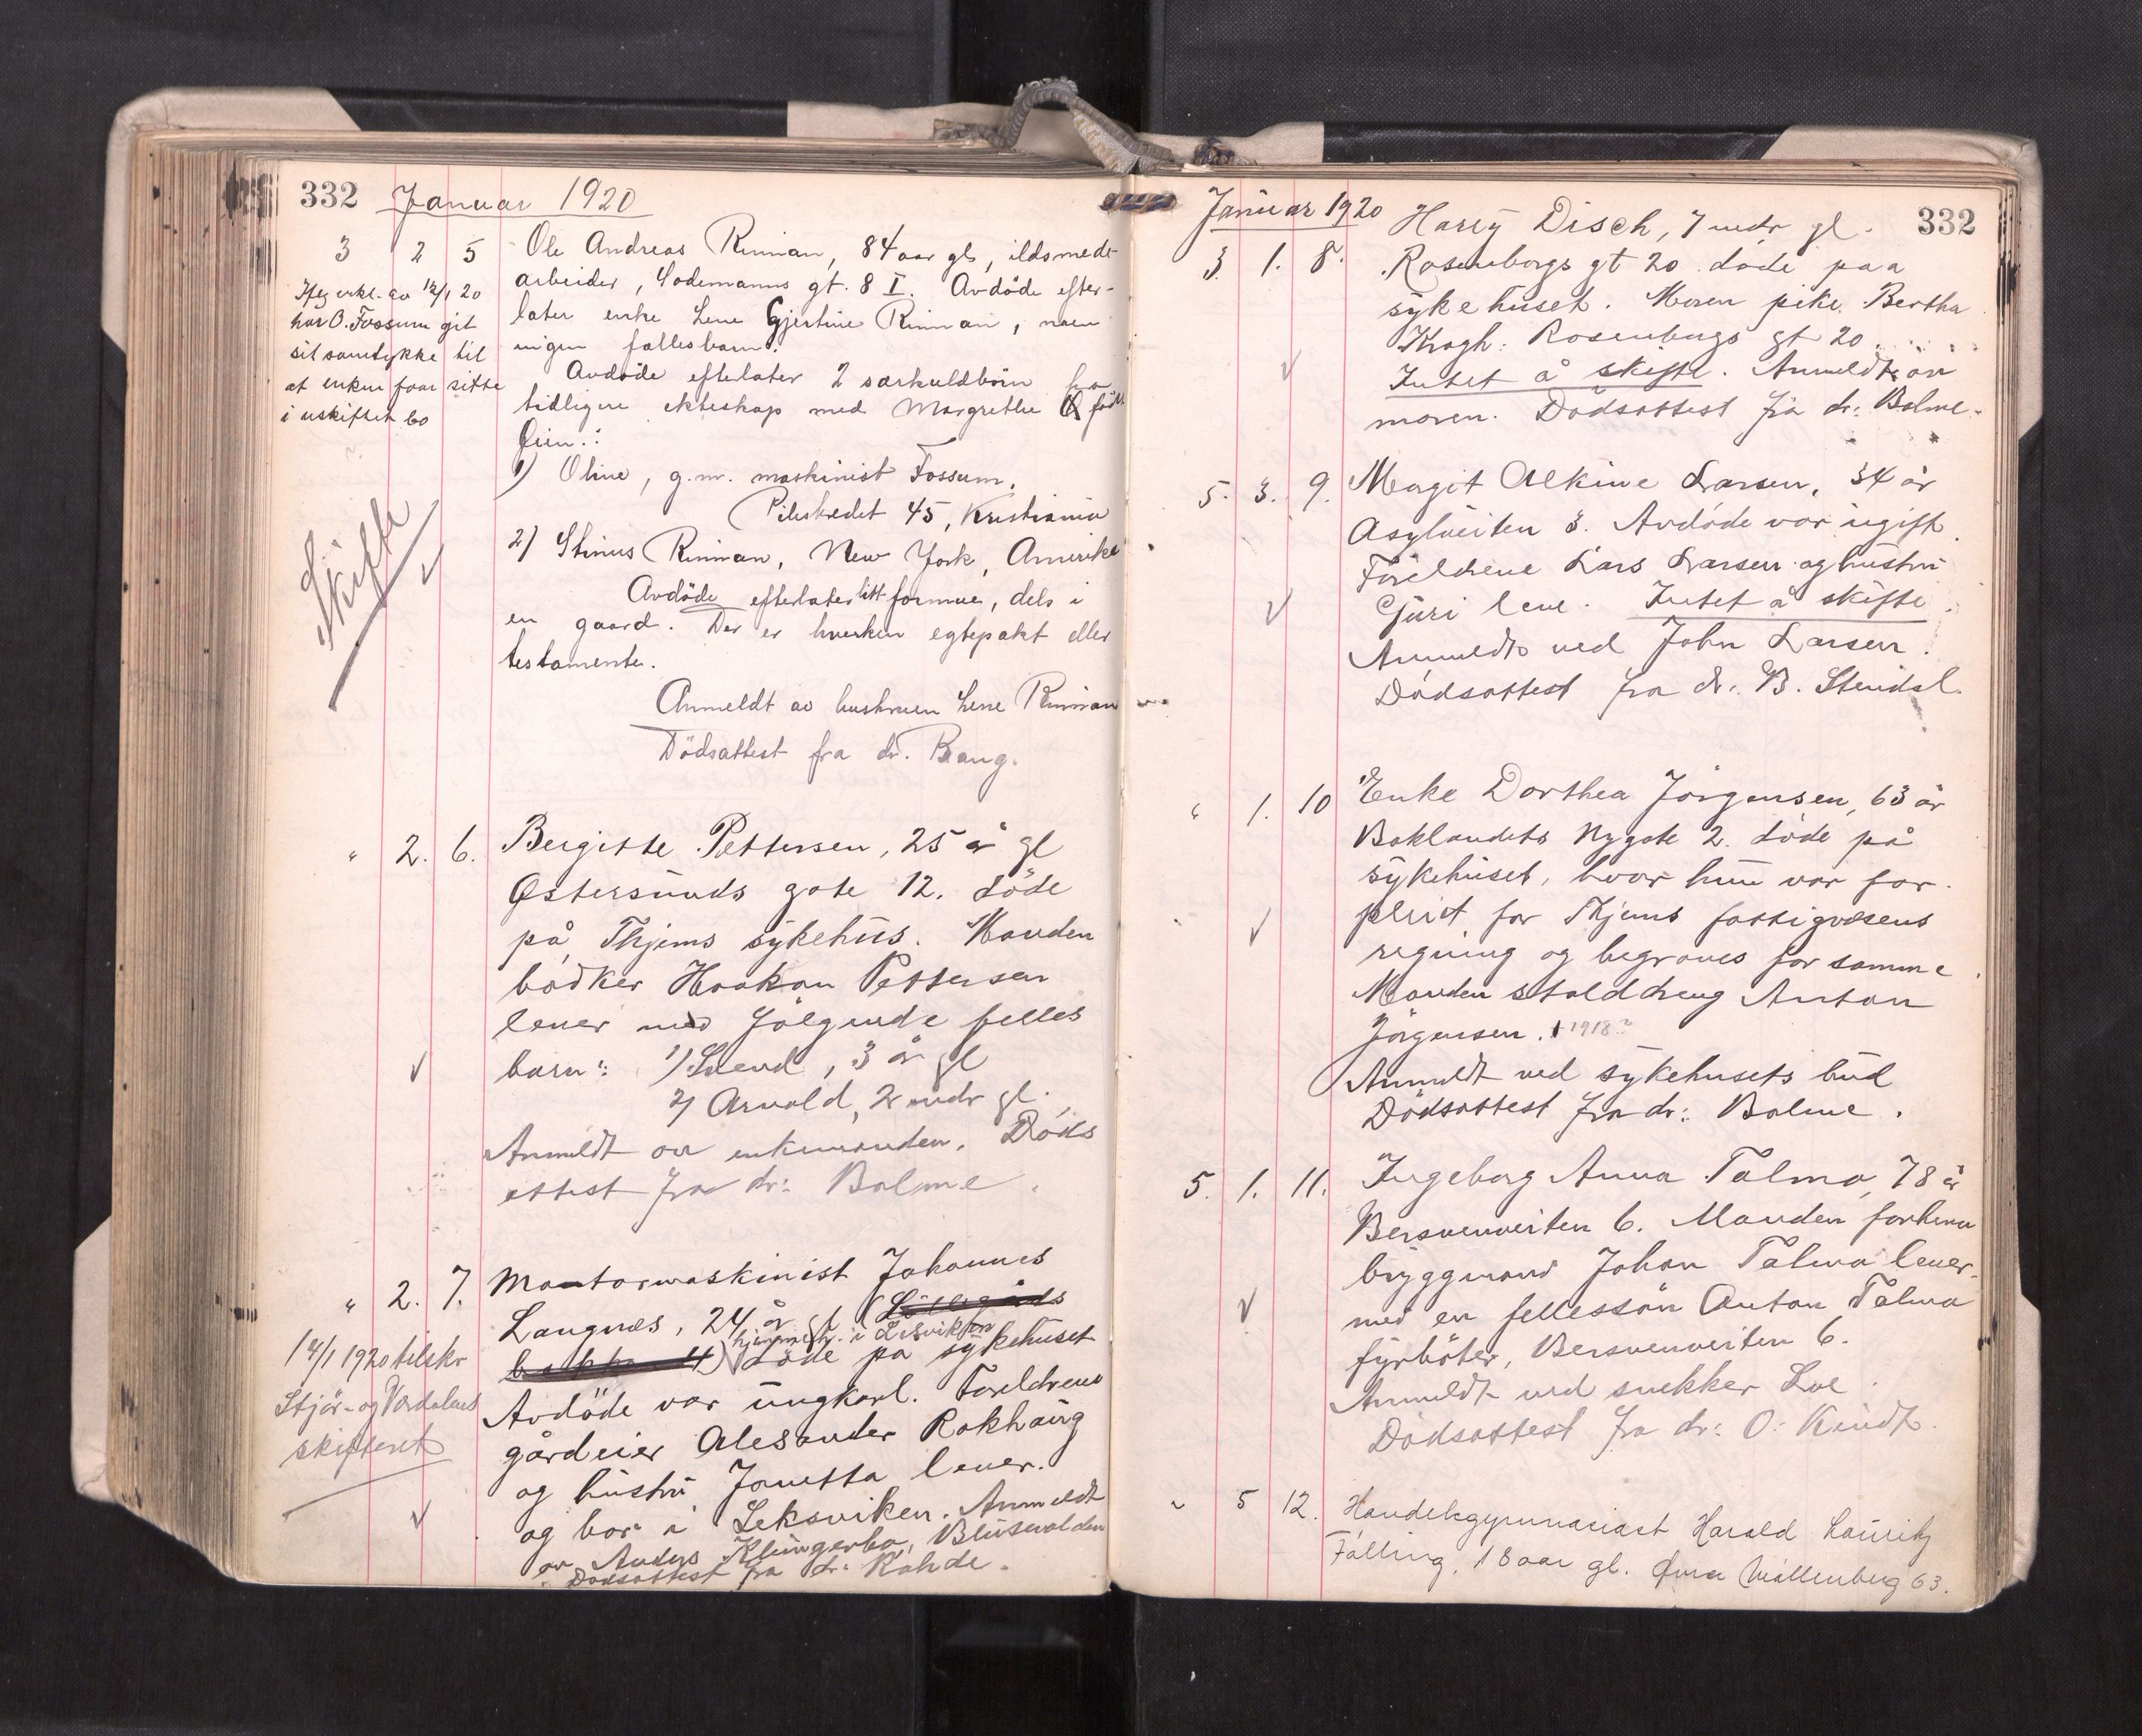 332 Januar 1920
3 2 5 Ole Andreas Rinnan, 84 aar gl, ildsmeds-
arbeider, Lodemanns gt. 8 I. Avdöde efter-
later enke Lene Gjertine Rinnan, men
ingen fællesbarn.
Avdöde efterlater 2 særkuldbörn fra
tidligere ekteskap med Margrethe född
Öien:
1) Oline, g.m. maskinist Fossum,
Pilestrædet 45, Kristiania
2) Stinus Rinnan, New York, Amerika
Avdöde efterlater litt formue, dels i
en gaard. Der er hverken egtepakt eller
testamente.
Anmeldt av hustruen Lene Rinnan
Dödsattest fra dr. Bang.
Iflg erkl. av 12/1 20
har O. Fossum git
sit samtykke til
at enken faar sitte
i uskiftet bo
Skifte
" 2. 6. Bergitte Pettersen, 25 år gl
Østersunds gate 12. Döde
på Thjems sykehus. Manden
bödker Haakon Pettersen
lever med fölgende felles
barn: 1) Svend, 3 år gl
2) Arvald, 2 mdr gl.
Anmeldt av enkemanden. Döds
attest fra dr: Balme.
" 2. 7. Maatormaskinist Johannes
Langnes, 24 år gl (
hjemmeh. i Lexviken
) Döde på sykehuset
Avdöde var ungkarl. Foreldrene
gårdeier Alesander Rokhaug
og hustru Janetta lever.
og bor i Leksviken. Anmeldt
av Anders Klungerbo, Blusuvolden
Dødsattest fra dr: Rohde.
14/1 1920 tilskr
Stjör- og Værdalens
skifteret
Januar 1920 332
3. 1. 8. Harry Disch, 7 mdr gl.
Rosenborgs gt 20. döde paa
sykehuset. Moren pike Bertha
Krogh: Rosenborgs gt 20.
Intet å skifte. Anmeldt av
moren. Dödsattest fra dr: Balme.
5. 3. 9. Margit Alkine Larsen, 34 år
Asylveiten 3. Avdöde var ugift.
Foreldrene Lars Larsen og hustru
Guri leve. Intet å skifte.
Anmeldt ved John Larsen.
Dödsattest fra dr. B. Stendal.
" 1. 10 Enke Dorthea Jörgensen, 63 år
Baklandets Nygate 2. döde på
sykehuset, hvor hun var for-
pleiet for Thjems fattigvæsens
regning og begraves for samme.
Manden stalddreng Anton
Jörgensen. † 1918?
Anmeldt ved sykehusets bud
Dödsattest fra dr: Balme.
5. 1. 11. Ingeborg Anna Talmo, 78 år
Bersvenveiten 6. Manden forhenv
bryggmand Johan Talmo lever
med en fellessön Anton Talmo
fyrböter, Bersvenveiten 6.
Anmeldt ved snekker Loe.
Dödsattest fra dr: O. Kindt.
" 5 12. Handelsgymnasiast Harald Lauritz
Fölling, 18 aar gl. Övre Möllenberg 63.